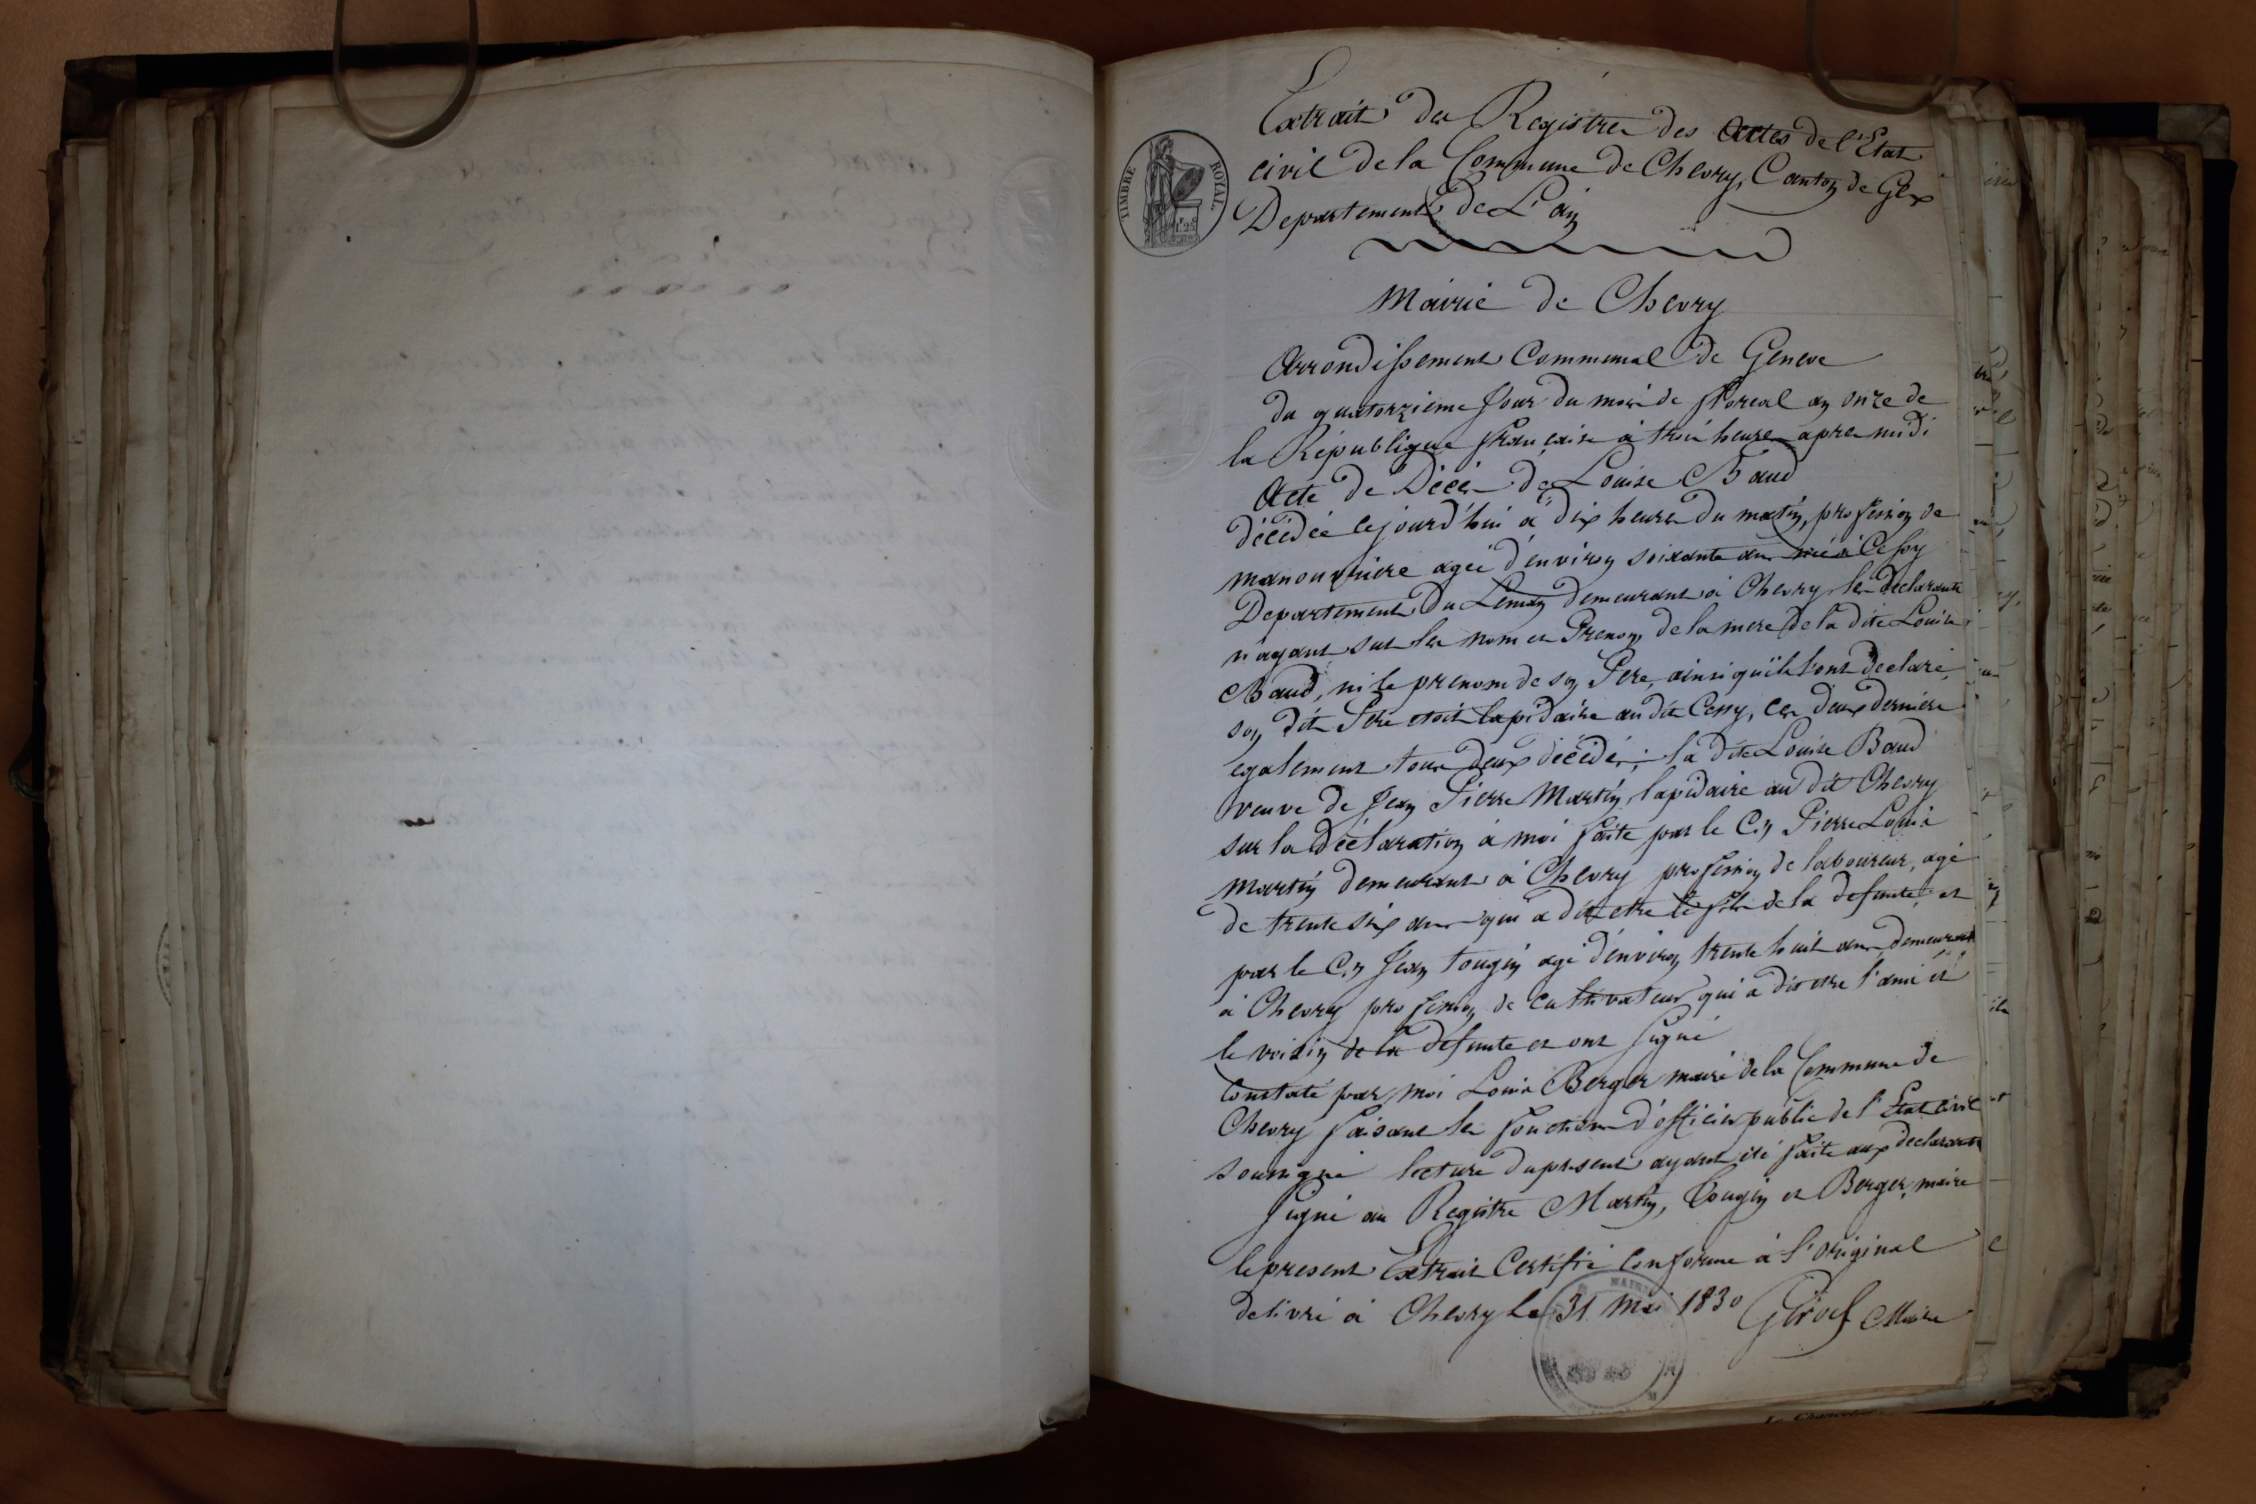 Extrait des Registres des Actes de l'Etat
civil de la Commune de Chevry, Canton de Gex
Departement de L'ain
TIMBRE ROYAL
Mairie de Chevry
Arrondissement Communal de Geneve
du quatorzieme Jour du mois de floreal an onze de
la République française à trois heures apres midi
Acte de Décès de Louise Baud
décédée cejourd'hui à dix heures du matin, profession de
manouvrière agée d'environ soixante ans née à Cessy
Departement du Leman demeurant à Chevry, les declarants
n'ayant sut les nom et Prenom de la mere de la dite Louise
Baud, ni le prenom de son Pere, ainsi qu'ils l'ont declaré,
son dit Pere etoit lapidaire au dit Cessy, ces deux derniers
egalement tous deux décédés; la dite Louise Baud
veuve de Jean Pierre Martin, lapidaire au dit Chevry
sur la Déclaration à moi faite par le C.n Pierre Louis
Martin demeurant à Chevry profession de laboureur, agé
de trente six ans qui a dit etre le fils de la defunte, et
par le C.n Jean Tougin agé d'environ trente huit ans demeurant
à Chevry profession de Cultivateur qui a dit etre l'ami et
le voisin de la defunte et ont signé
Constaté par moi Louis Berger maire de la Commune de
Chevry faisant les fonctions d'officier public de l'Etat civil
soussigné lecture du present ayant été faite aux declarants
signé au Registre Martin, Tougin et Berger, maire
le present Extrait Certifié Conforme à l'original
delivré à Chevry le 31 Mai 1830 Maire